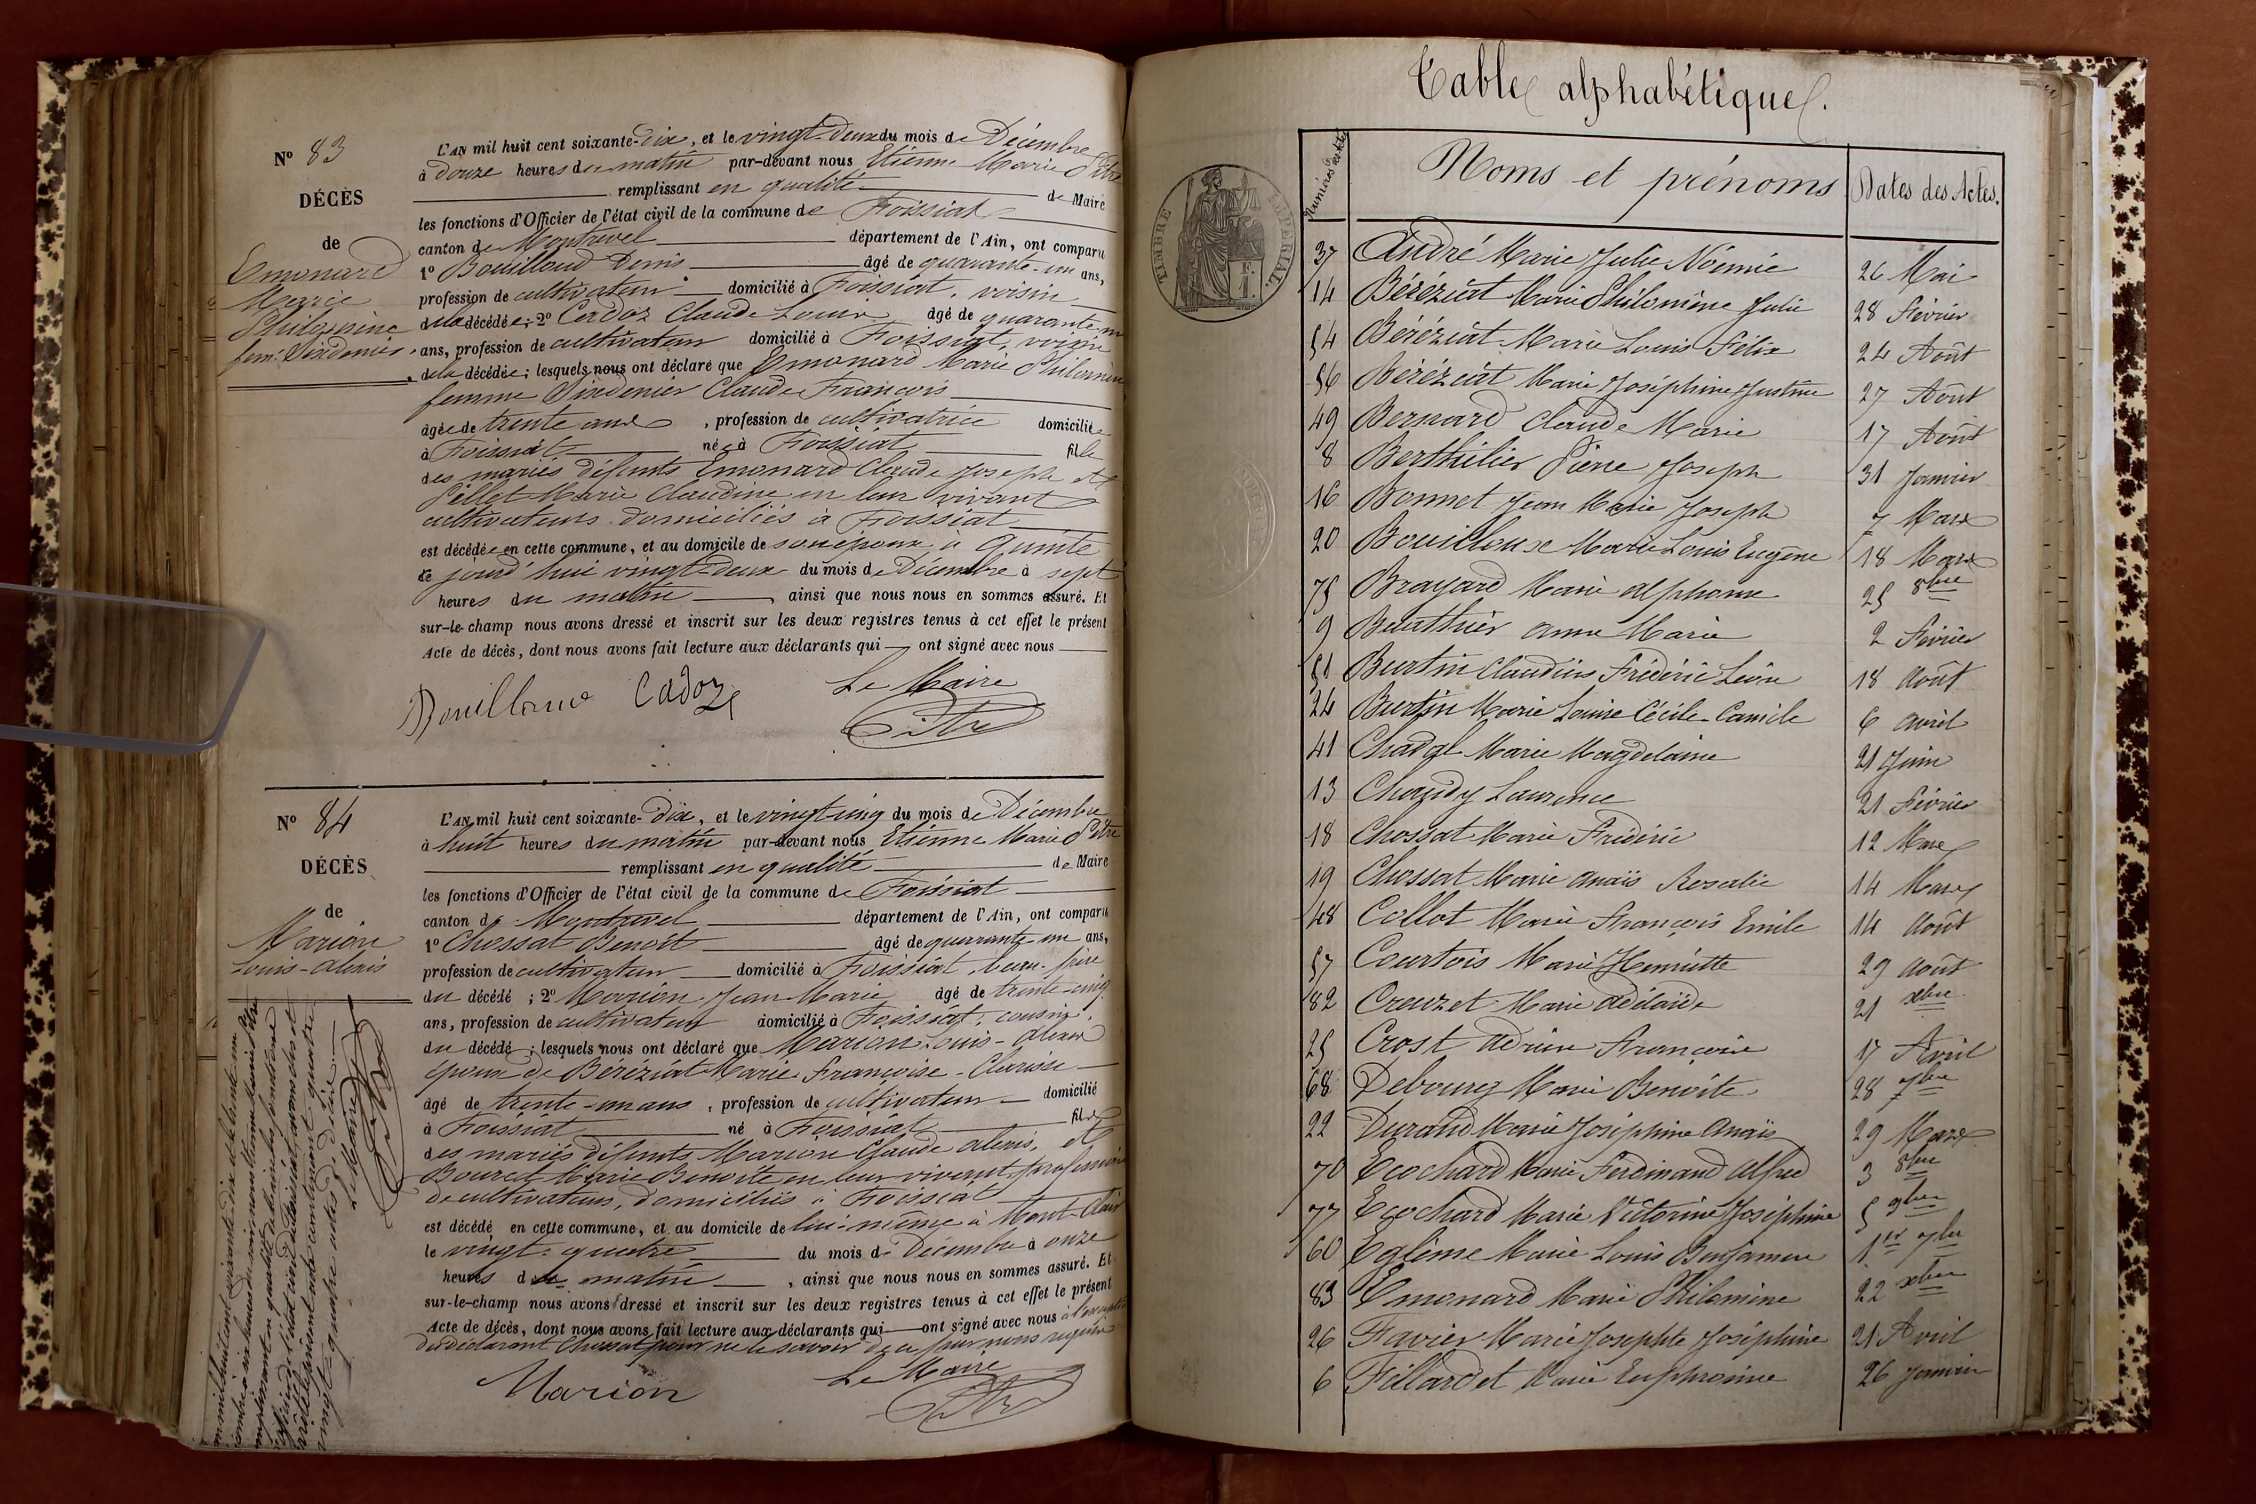 N° 83
DÉCÈS
de
Emonard
Marie
Philomène
fem: Pindenier
L'AN mil huit cent soixante-dix, et le vingt-deux du mois de Décembre
à douze heures du matin par-devant nous Etienne Marie Pitre
remplissant en qualité de Maire
les fonctions d'Officier de l'état civil de la commune de Foissiat
canton de Montrevel département de l'Ain, ont comparu
1° Bouilloud Denis âgé de quarante-un ans,
profession de cultivateur domicilié à Foissiat, voisin
de la décédée; 2° Cadoz Claude Louis âgé de quarante-un
ans, profession de cultivateur domicilié à Foissiat, voisin
de la décédée; lesquels nous ont déclaré que Emonard Marie Philomène
femme Pindenier Claude François
âgée de trente ans, profession de cultivatrice domiciliée
à Foissiat née à Foissiat fille
des mariés défunts Emonard Claude Joseph et
Pellet Marie Claudine en leur vivant
cultivateurs domiciliés à Foissiat
est décédée en cette commune, et au domicile de son époux à
ce jourd'hui vingt-deux du mois de Décembre à sept
heures du matin, ainsi que nous nous en sommes assuré. Et
sur-le-champ nous avons dressé et inscrit sur les deux registres tenus à cet effet le présent
Acte de décès, dont nous avons fait lecture aux déclarants qui ont signé avec nous
Le Maire
Bouilloud Cadoz
Pitre
N° 84
DÉCÈS
de
Marion
Louis-Alexis
L'AN mil huit cent soixante-dix, et le vingt-cinq du mois de Décembre
à huit heures du matin par-devant nous Etienne Marie Pitre
remplissant en qualité de Maire
les fonctions d'Officier de l'état civil de la commune de Foissiat
canton de Montrevel département de l'Ain, ont comparu
1° Chossat Benoît âgé de quarante-un ans,
profession de cultivateur domicilié à Foissiat, beau-frère
du décédé; 2° Marion Jean Marie âgé de trente-cinq
ans, profession de cultivateur domicilié à Foissiat, cousin
du décédé; lesquels nous ont déclaré que Marion Louis-Alexis
époux de Béréziat Marie Françoise-Clarisse
âgé de trente-un ans, profession de cultivateur domicilié
à Foissiat né à Foissiat fils
des mariés défunts Marion Claude Alexis, et
Bourcet Marie Benoîte en leur vivant, profession
de cultivateurs, domiciliés à Foissiat
est décédé en cette commune, et au domicile de lui-même à Mont-
le vingt-quatre du mois de Décembre à onze
heures du matin, ainsi que nous nous en sommes assuré. Et
sur-le-champ nous avons dressé et inscrit sur les deux registres tenus à cet effet le présent
Acte de décès, dont nous avons fait lecture aux déclarants qui ont signé avec nous à l'exception
du déclarant Chossat pour ne le savoir de ce par nous requis
Le Maire
Marion
Pitre
Le Maire
TIMBRE IMPÉRIAL
Table alphabétique.
Numéros des actes
Noms et prénoms
Dates des Actes.
37 André Marie Julie Noémie 26 Mai
14 Béréziat Marie Philomène Julie 28 Février
54 Béréziat Marie Louis Félix 24 Août
56 Béréziat Marie Joséphine Justine 27 Août
49 Bernard Claude Marie 17 Août
8 Berthilier Pierre Joseph 31 Janvier
16 Bonnet Jean Marie Joseph 7 Mars
20 Bouilloux Marie Louis Eugène 18 Mars
75 Brayard Marie Alphonse 25 8bre
9 Burthier Anne Marie 2 Février
51 Burtin Claudius Frédéric Léon 18 Août
24 Burtin Marie Louise Cécile-Camile 6 Avril
41 Chadal Marie Magdelaine 21 Juin
13 Chaudy Laurence 21 Février
18 Chossat Marie Frédéric 12 Mars
19 Chossat Marie Anaïs Rosalie 14 Mars
48 Collot Marie François Emile 14 Août
57 Courtois Marie Henriette 29 Août
82 Creuzet Marie Adélaïde 21 xbre
25 Crost Adrien François 17 Avril
68 Debourg Marie Benoîte 28 7bre
22 Durand Marie Joséphine Anaïs 29 Mars
70 Ecochard Marie Ferdinand Alfred 3 8bre
77 Ecochard Marie Victorine Joséphine 5 9bre
60 Eglème Marie Louis Benjamin 1er 7bre
83 Emonard Marie Philomène 22 xbre
26 Favier Marie Josephte Joséphine 21 Avril
6 Fillardet Marie Euphrosine 26 Janvier